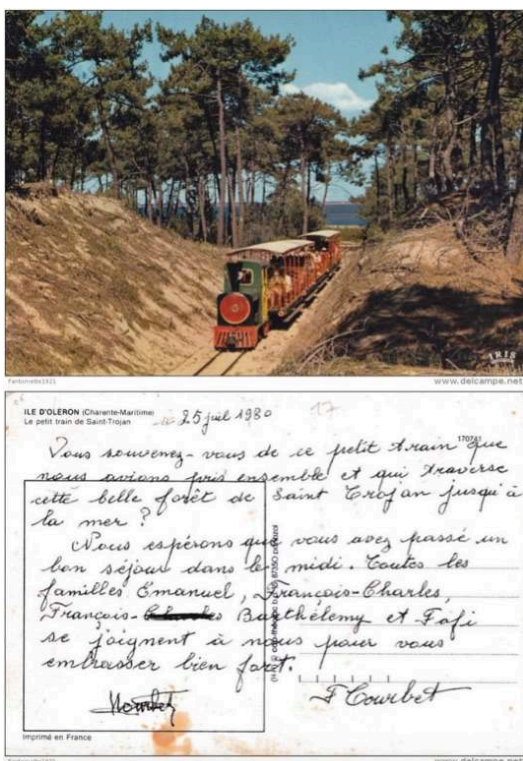 IRIS
Fantomette1921
www.delcampe.net
ILE D'OLERON (Charente-Maritime)
Le petit train de Saint-Trojan
le 25 juil 1980
17
170741
Vous souvenez-vous de ce petit train que
nous avions pris ensemble et qui traverse
cette belle forêt de Saint Trojan jusqu'à
la mer ?
Nous espérons que vous avez passé un
bon séjour dans le midi. Toutes les
familles Emanuel, François-Charles,
François- Barthélemy et Fafi
se joignent à nous pour vous
embrasser bien fort.
F Courbet
Imprimé en France
Fantomette1921
www.delcampe.net